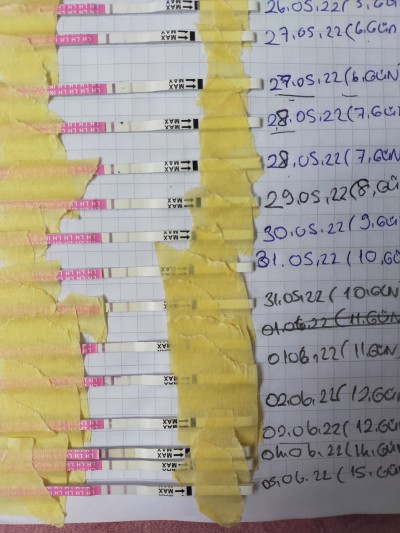 26.05.22(5.GÜN
27.05.22(6.GÜN
27.05.22(6.GÜN)
28.05.22(7.GÜN
28.05.22(7.GÜN
29.05.22(8.GÜN
30.05.22(9.GÜN
31.05.22(10.GÜN
31.05.22(10.GÜN)
01.06.22(11.GÜN
01.06.22(11.GÜN
02.06.22(12.GÜN
02.06.22(12.GÜN
04.06.22(14.GÜN
05.06.22(15.GÜN
LH LH LH LH
MAX